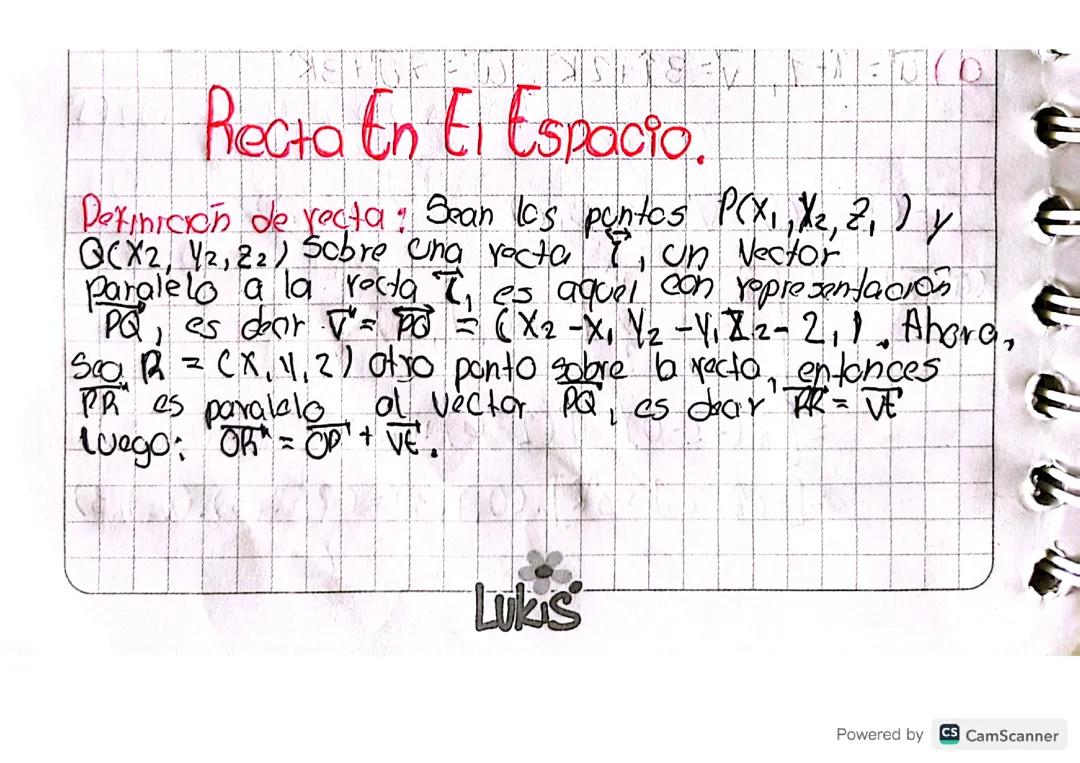 Recta En El Espacio.
Definición de recta: Sean los puntos P(X₁, X₂, Z₁) y
Q(X2, Y2, Z2) sobre una recta, un Vector
paralelo a la recta, es aquel con representación
PQ, es decir V = PQ = (X₂-X₁ Y₂-Y₁ Z₂-Z₁). Ahora,
Sea R = (X, Y, Z) otro punto sobre la recta, entonces
PR es paralelo al vector PQ, es decir PR = VE
luego: OR = OP + VE.
Lukis
Powered by CS CamScanner